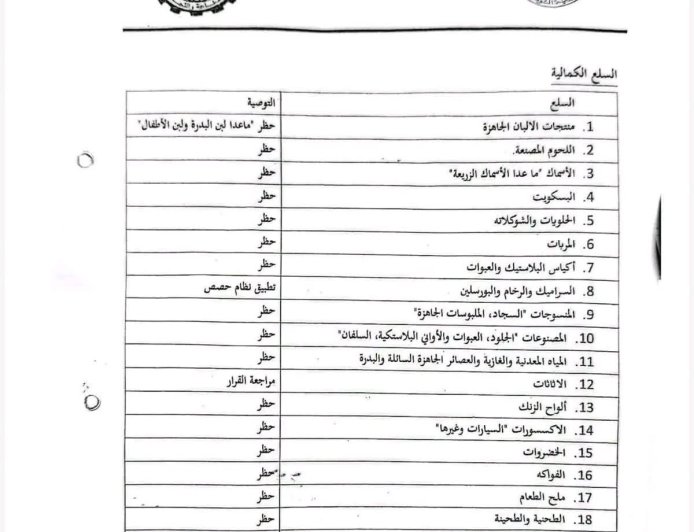 السلع الكمالية
السلع التوصية
1. منتجات الالبان الجاهزة حظر "ماعدا لبن البدرة ولبن الأطفال"
2. اللحوم المصنعة. حظر
3. الأسماك "ما عدا الأسماك الزريعة" حظر
4. البسكويت حظر
5. الحلويات والشوكلاته حظر
6. المربات حظر
7. أكياس البلاستيك والعبوات حظر
8. السراميك والرخام والبورسلين تطبيق نظام حصص
9. المنسوجات "السجاد، الملبوسات الجاهزة" حظر
10. المصنوعات "الجلود، العبوات والأواني البلاستكية، السلفان" حظر
11. المياه المعدنية والغازية والعصائر الجاهزة السائلة والبدرة حظر
12. الاثاثات مراجعة القرار
13. ألواح الزنك حظر
14. الاكسسورات "السيارات وغيرها" حظر
15. الخضروات حظر
16. الفواكه حظر
17. ملح الطعام حظر
18. الطحنية والطحينة حظر